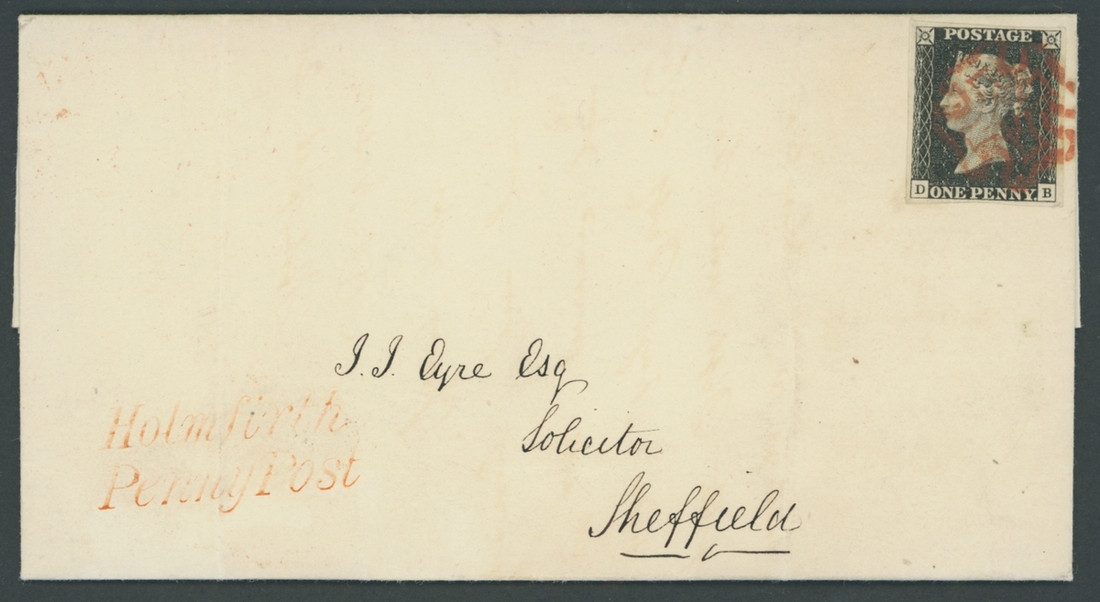 POSTAGE
D ONE PENNY. B
J. J. Eyre Esq
Solicitor
Sheffield
Holmfirth
Penny Post